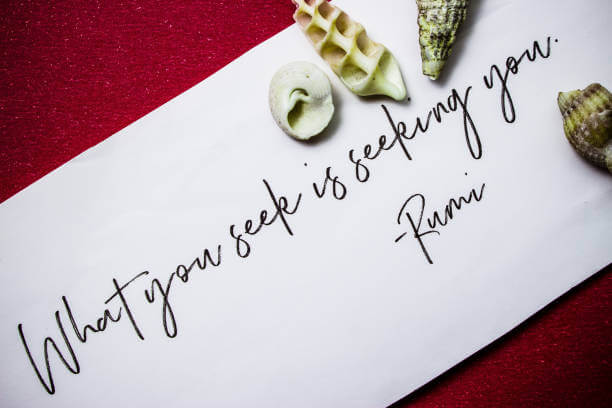 What you seek is seeking you.
-Rumi